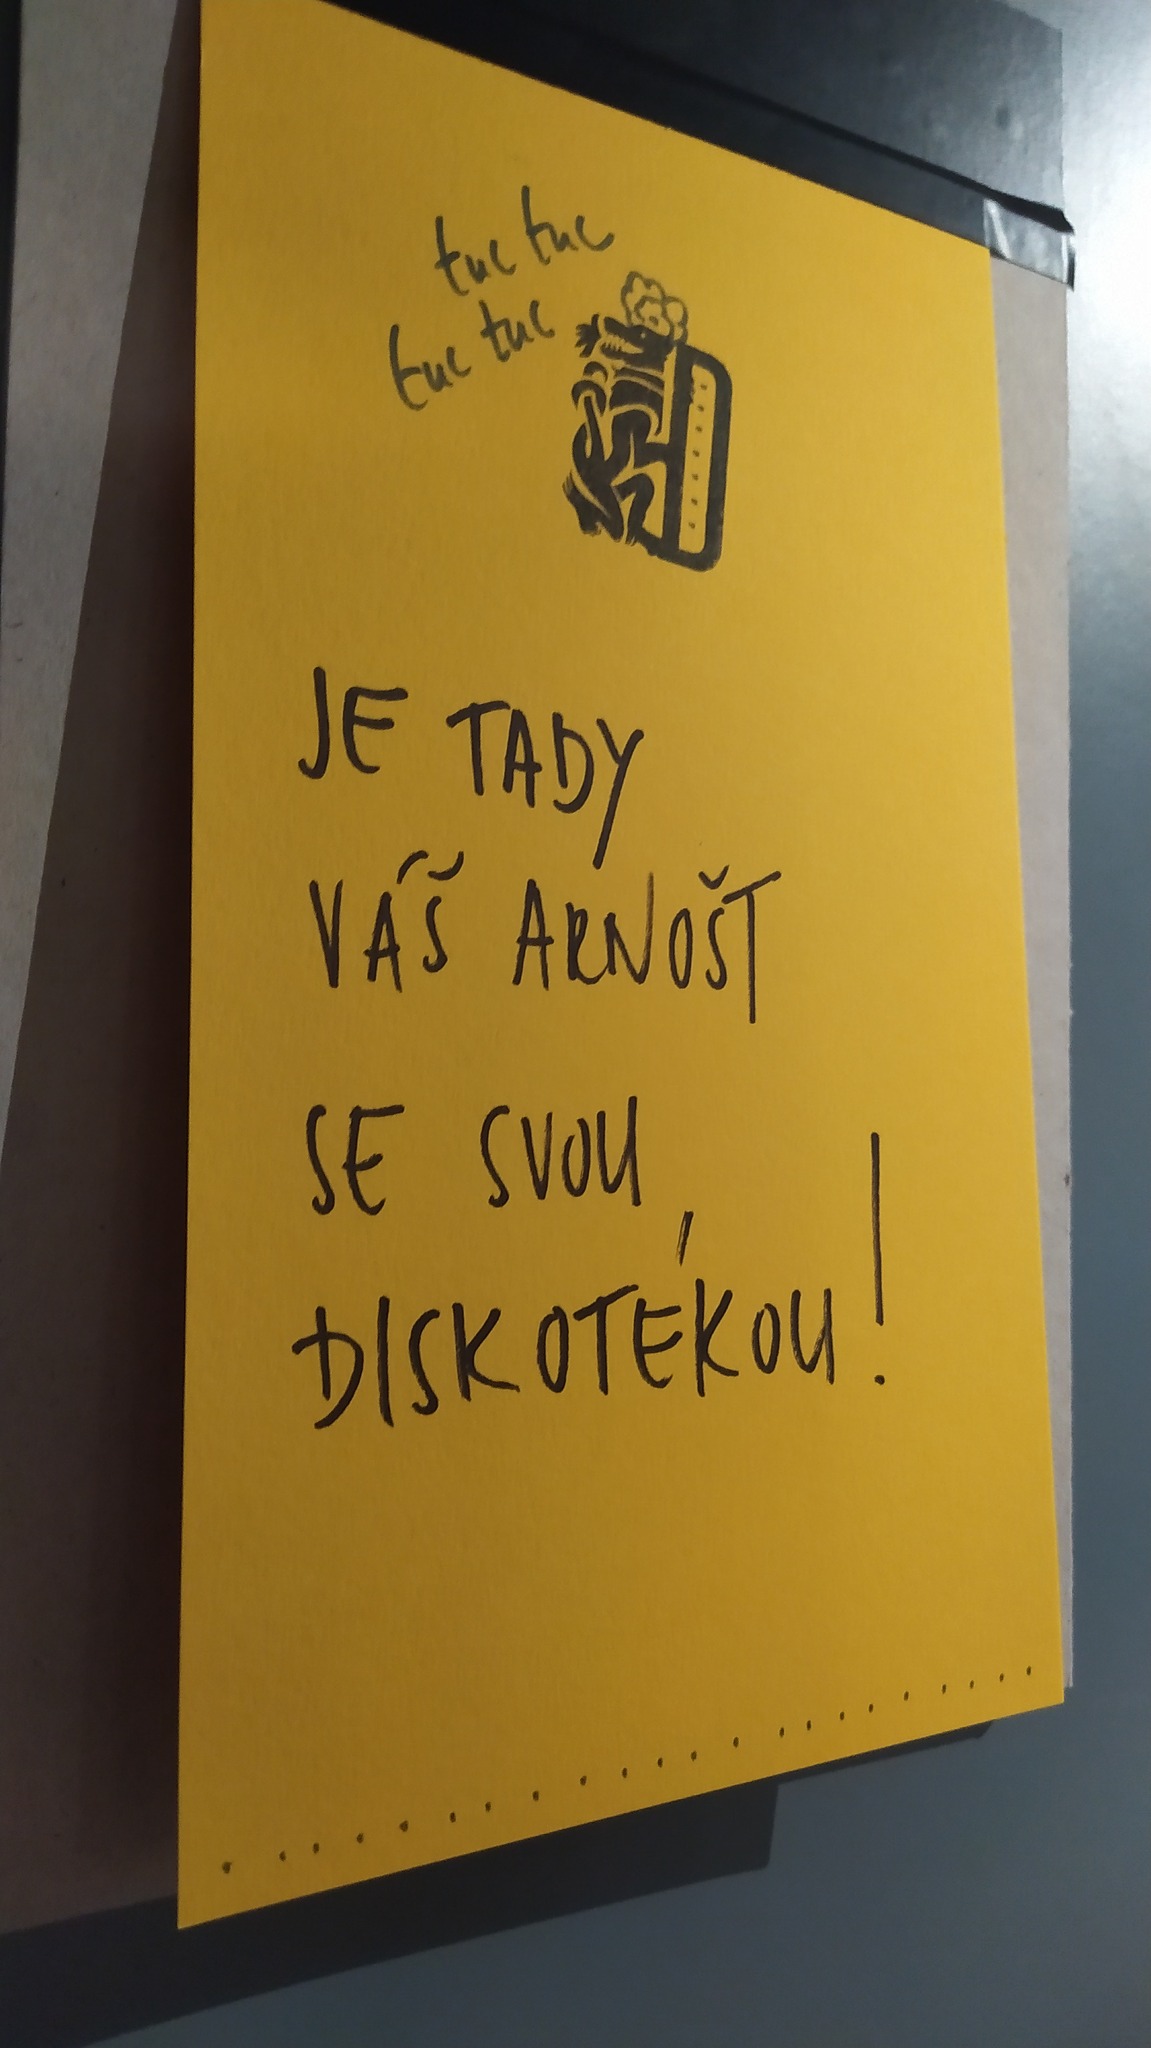 tuc tuc
tuc tuc
JE TADY
VÁŠ ARNOŠT
SE SVOU
DISKOTÉKOU!